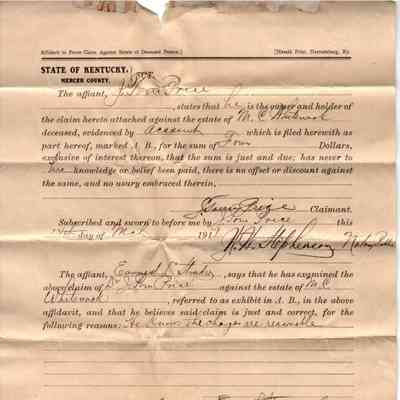 Affidavit to Prove Claim Against Estate of Deceased Person.] [Herald Print, Harrodsburg, Ky.
STATE OF KENTUCKY,
MERCER COUNTY, SCT.
The affiant, J. Tom Price
, states that he is the owner and holder of
the claim hereto attached against the estate of M. C. Whitenack
deceased, evidenced by account which is filed herewith as
part hereof, marked A. B., for the sum of Four Dollars,
exclusive of interest thereon, that the sum is just and due; has never to
his knowledge or belief been paid, there is no offset or discount against
the same, and no usury embraced therein.
Price Claimant.
Subscribed and sworn to before me by J. Tom Price this
day of 191
W. H. Stephenson Notary Public
The affiant, , says that he has examined the
above claim of J. Tom Price against the estate of M. C.
Whitenack , referred to as exhibit in A. B., in the above
affidavit, and that he believes said claim is just and correct, for the
following reasons: He knows the charges are reasonable